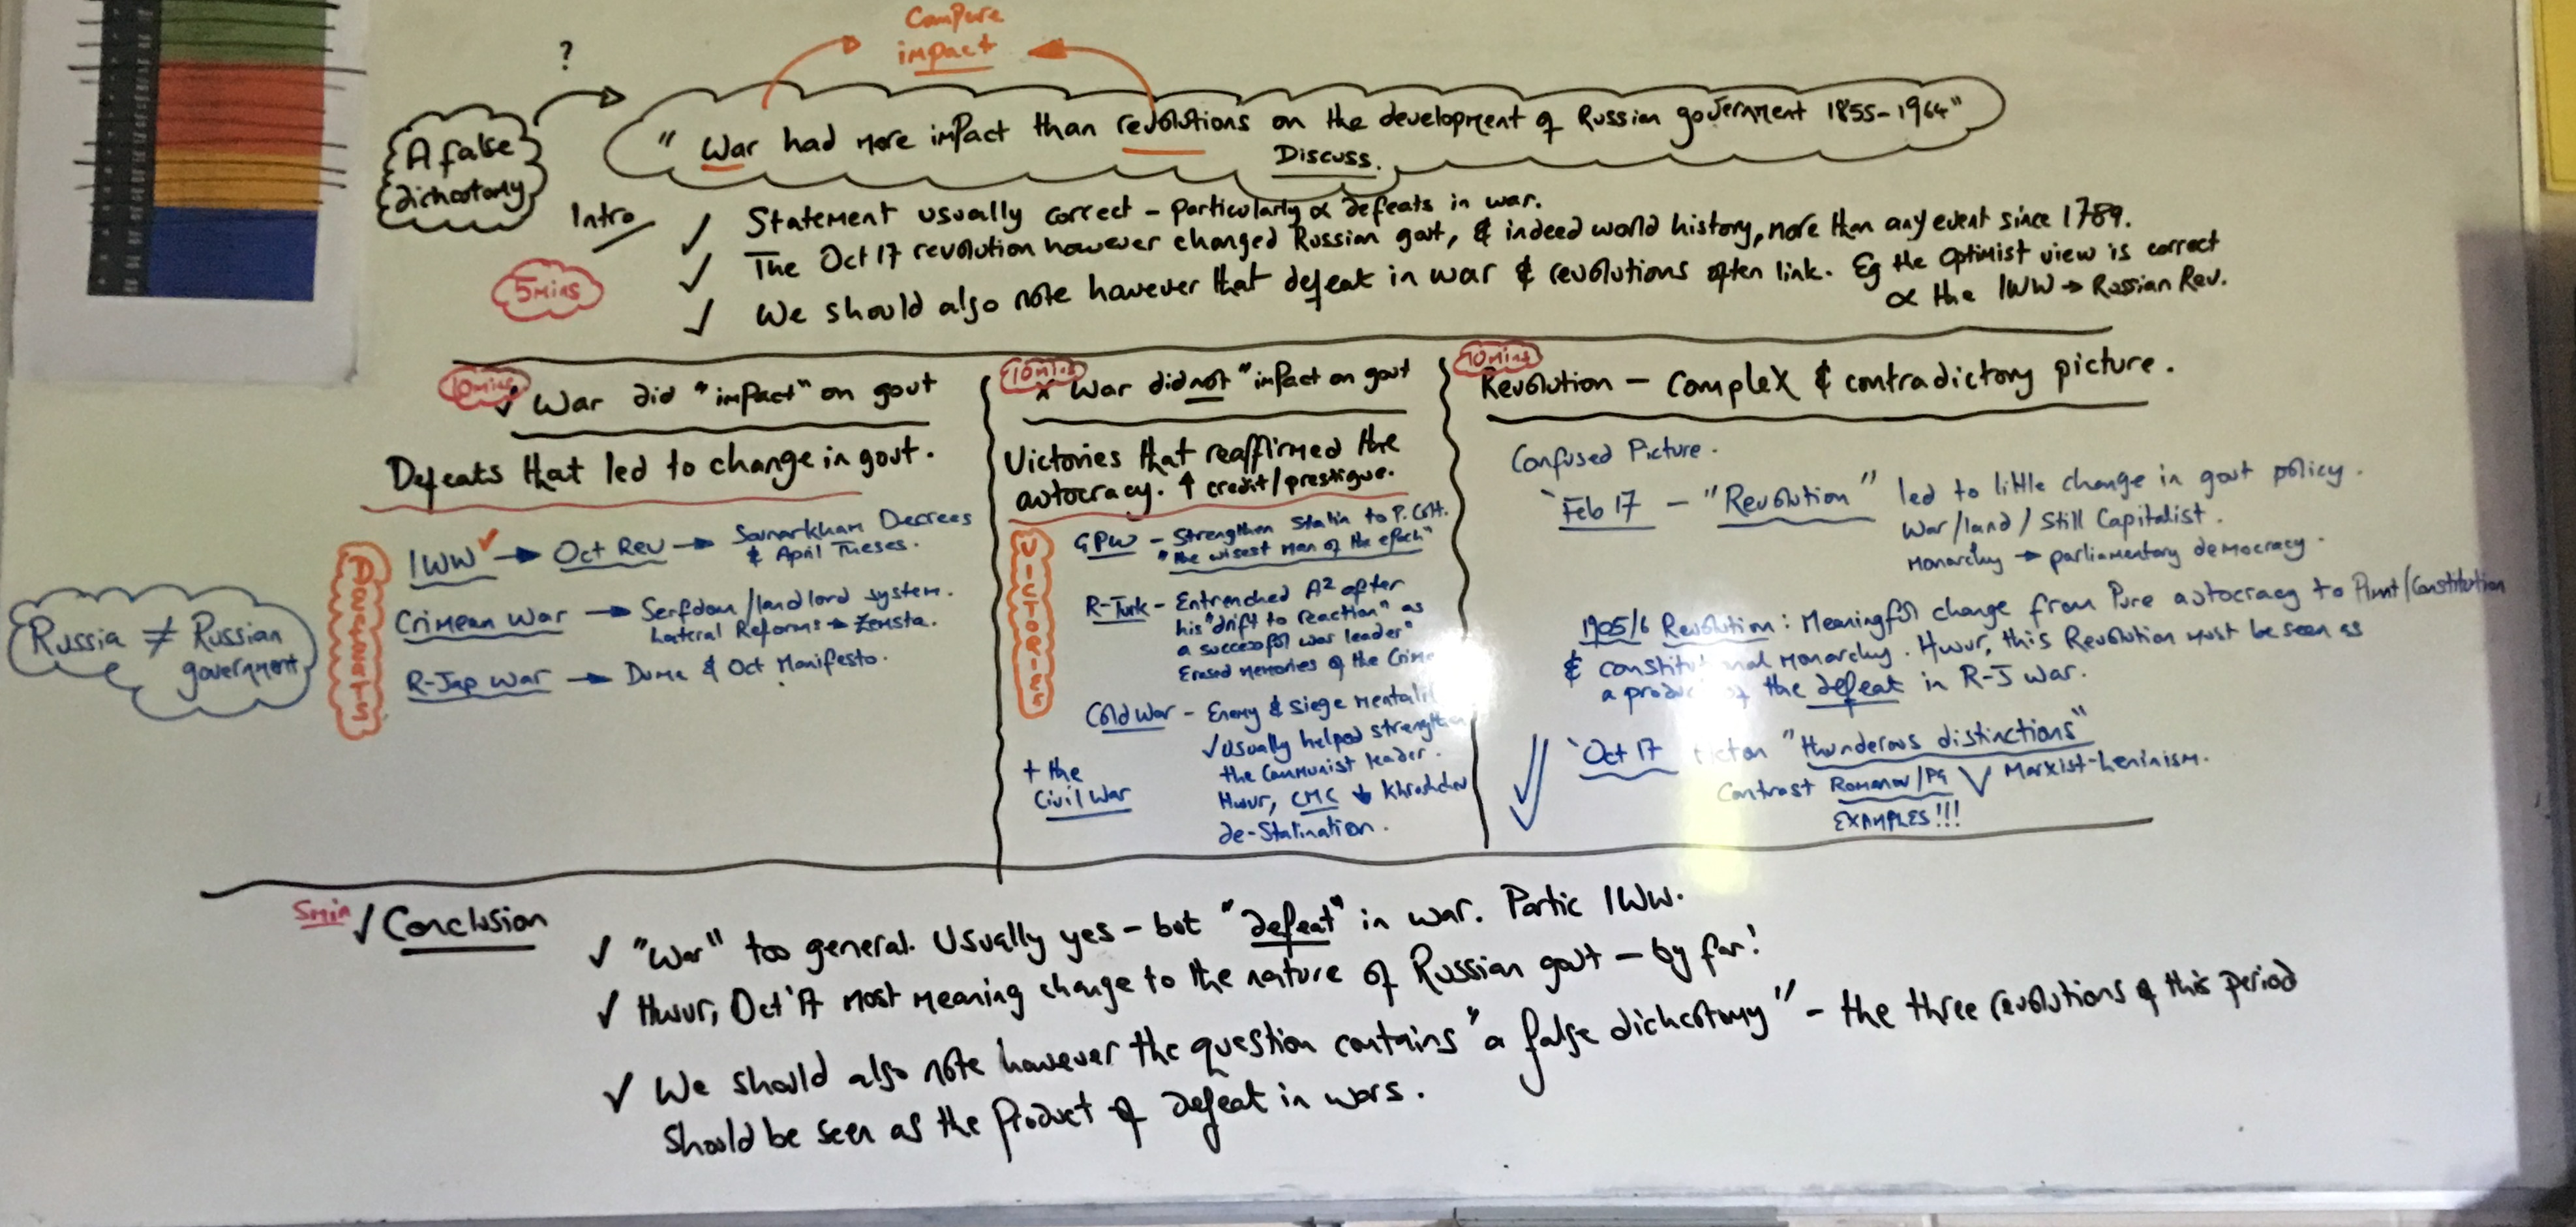 Compare
impact
?
A false
dichotomy
" War had more impact than revolutions on the development of Russian government 1855-1964"
Discuss.
Intro
5mins
✓ Statement usually correct - particularly ∝ defeats in war.
✓ The Oct 17 revolution however changed Russian govt, & indeed world history, more than any event since 1789.
✓ We should also note however that defeat in war & revolutions often link. Eg the Optimist view is correct
∝ the 1WW → Russian Rev.
10mins
✓ War did "impact" on govt
Defeats that led to change in govt.
Defeats
1WW ✓ → Oct Rev → Sovnarkham Decrees
& April Theses.
Crimean War → Serfdom/landlord system.
Lateral Reforms → Zemsta.
R-Jap War → Duma & Oct Manifesto.
Russia ≠ Russian
government
10mins
x War did not "impact on govt
Victories that reaffirmed the
autocracy. ↑ credit/prestigue.
VICTORIES
GPW - Strengthen Stalin to P. Cult.
"the wisest man of the epoch"
R-Turk - Entrenched A² after
his "drift to reaction" as
a successful war leader"
Erased memories of the Crime
Cold War - Enemy & siege mentali
✓ Usually helped strength
the Communist leader.
Hwvr, CMC ↓ Khrushchev
de-Stalination.
+ the
Civil War
10mins
Revolution - complex & contradictory picture.
Confused Picture.
'Feb 17 - "Revolution" led to little change in govt policy.
War/land/Still Capitalist.
Monarchy → parliamentary democracy.
1905/6 Revolution: Meaningful change from Pure autocracy to Plmt/Constitution
& constitu nal monarchy. Hwvr, this Revolution must be seen as
a produ of the defeat in R-J War.
'Oct 17 "thunderous distinctions"
Contrast Romanov/PG V Marxist-Leninism.
EXAMPLES!!!
5min
✓ Conclusion
✓ "War" too general. Usually yes - but "defeat" in war. Partic 1WW.
✓ Hwvr, Oct '17 most meaning change to the nature of Russian govt - by far!
✓ We should also note however the question contains "a false dichotomy" - the three revolutions of this period
should be seen as the product of defeat in wars.